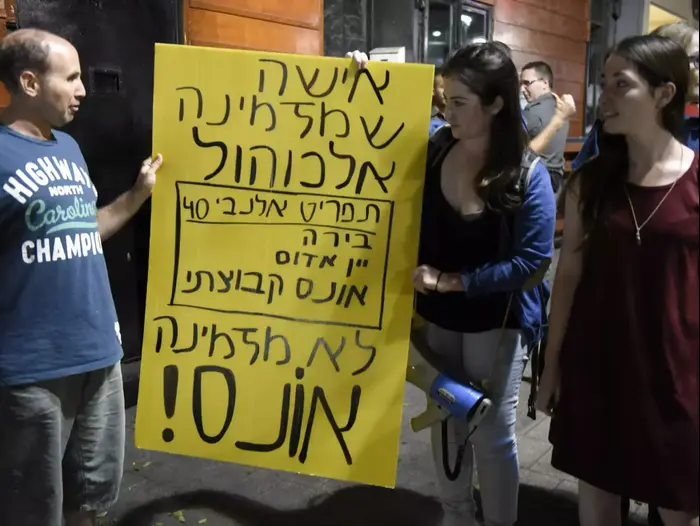 אישה
שמזמינה
אלכוהול
תפריט אלנבי 40
בירה
יין אדום
אונס קבוצתי
לא מזמינה
אונס!
HIGHWAY
NORTH
Carolina
CHAMPION